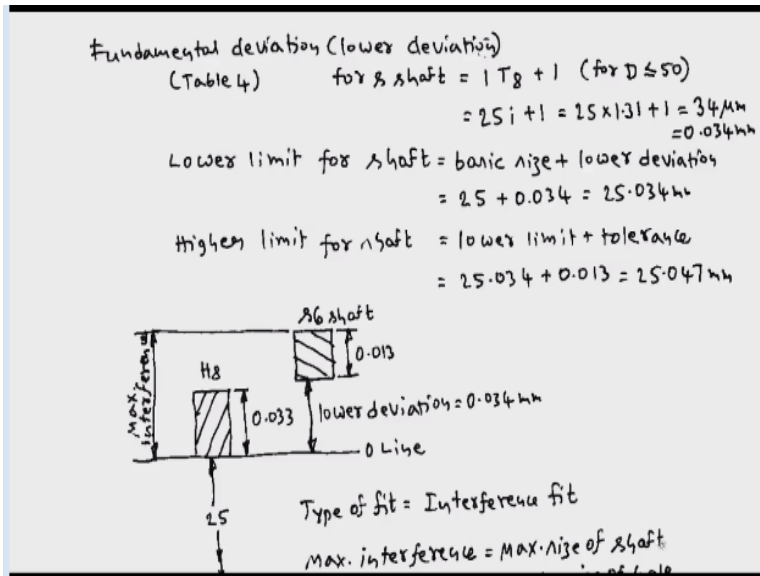 Fundamental deviation (lower deviation)
(Table 4) for s shaft = IT8 + 1 (for D ≤ 50)
= 25i + 1 = 25 × 1.31 + 1 = 34 μm
= 0.034 mm
Lower limit for shaft = basic size + lower deviation
= 25 + 0.034 = 25.034 mm
Higher limit for shaft = lower limit + tolerance
= 25.034 + 0.013 = 25.047 mm
s6 shaft
0.013
H8
Max. interference
0.033
lower deviation = 0.034 mm
0 Line
25
Type of fit = Interference fit
Max. interference = Max. size of shaft